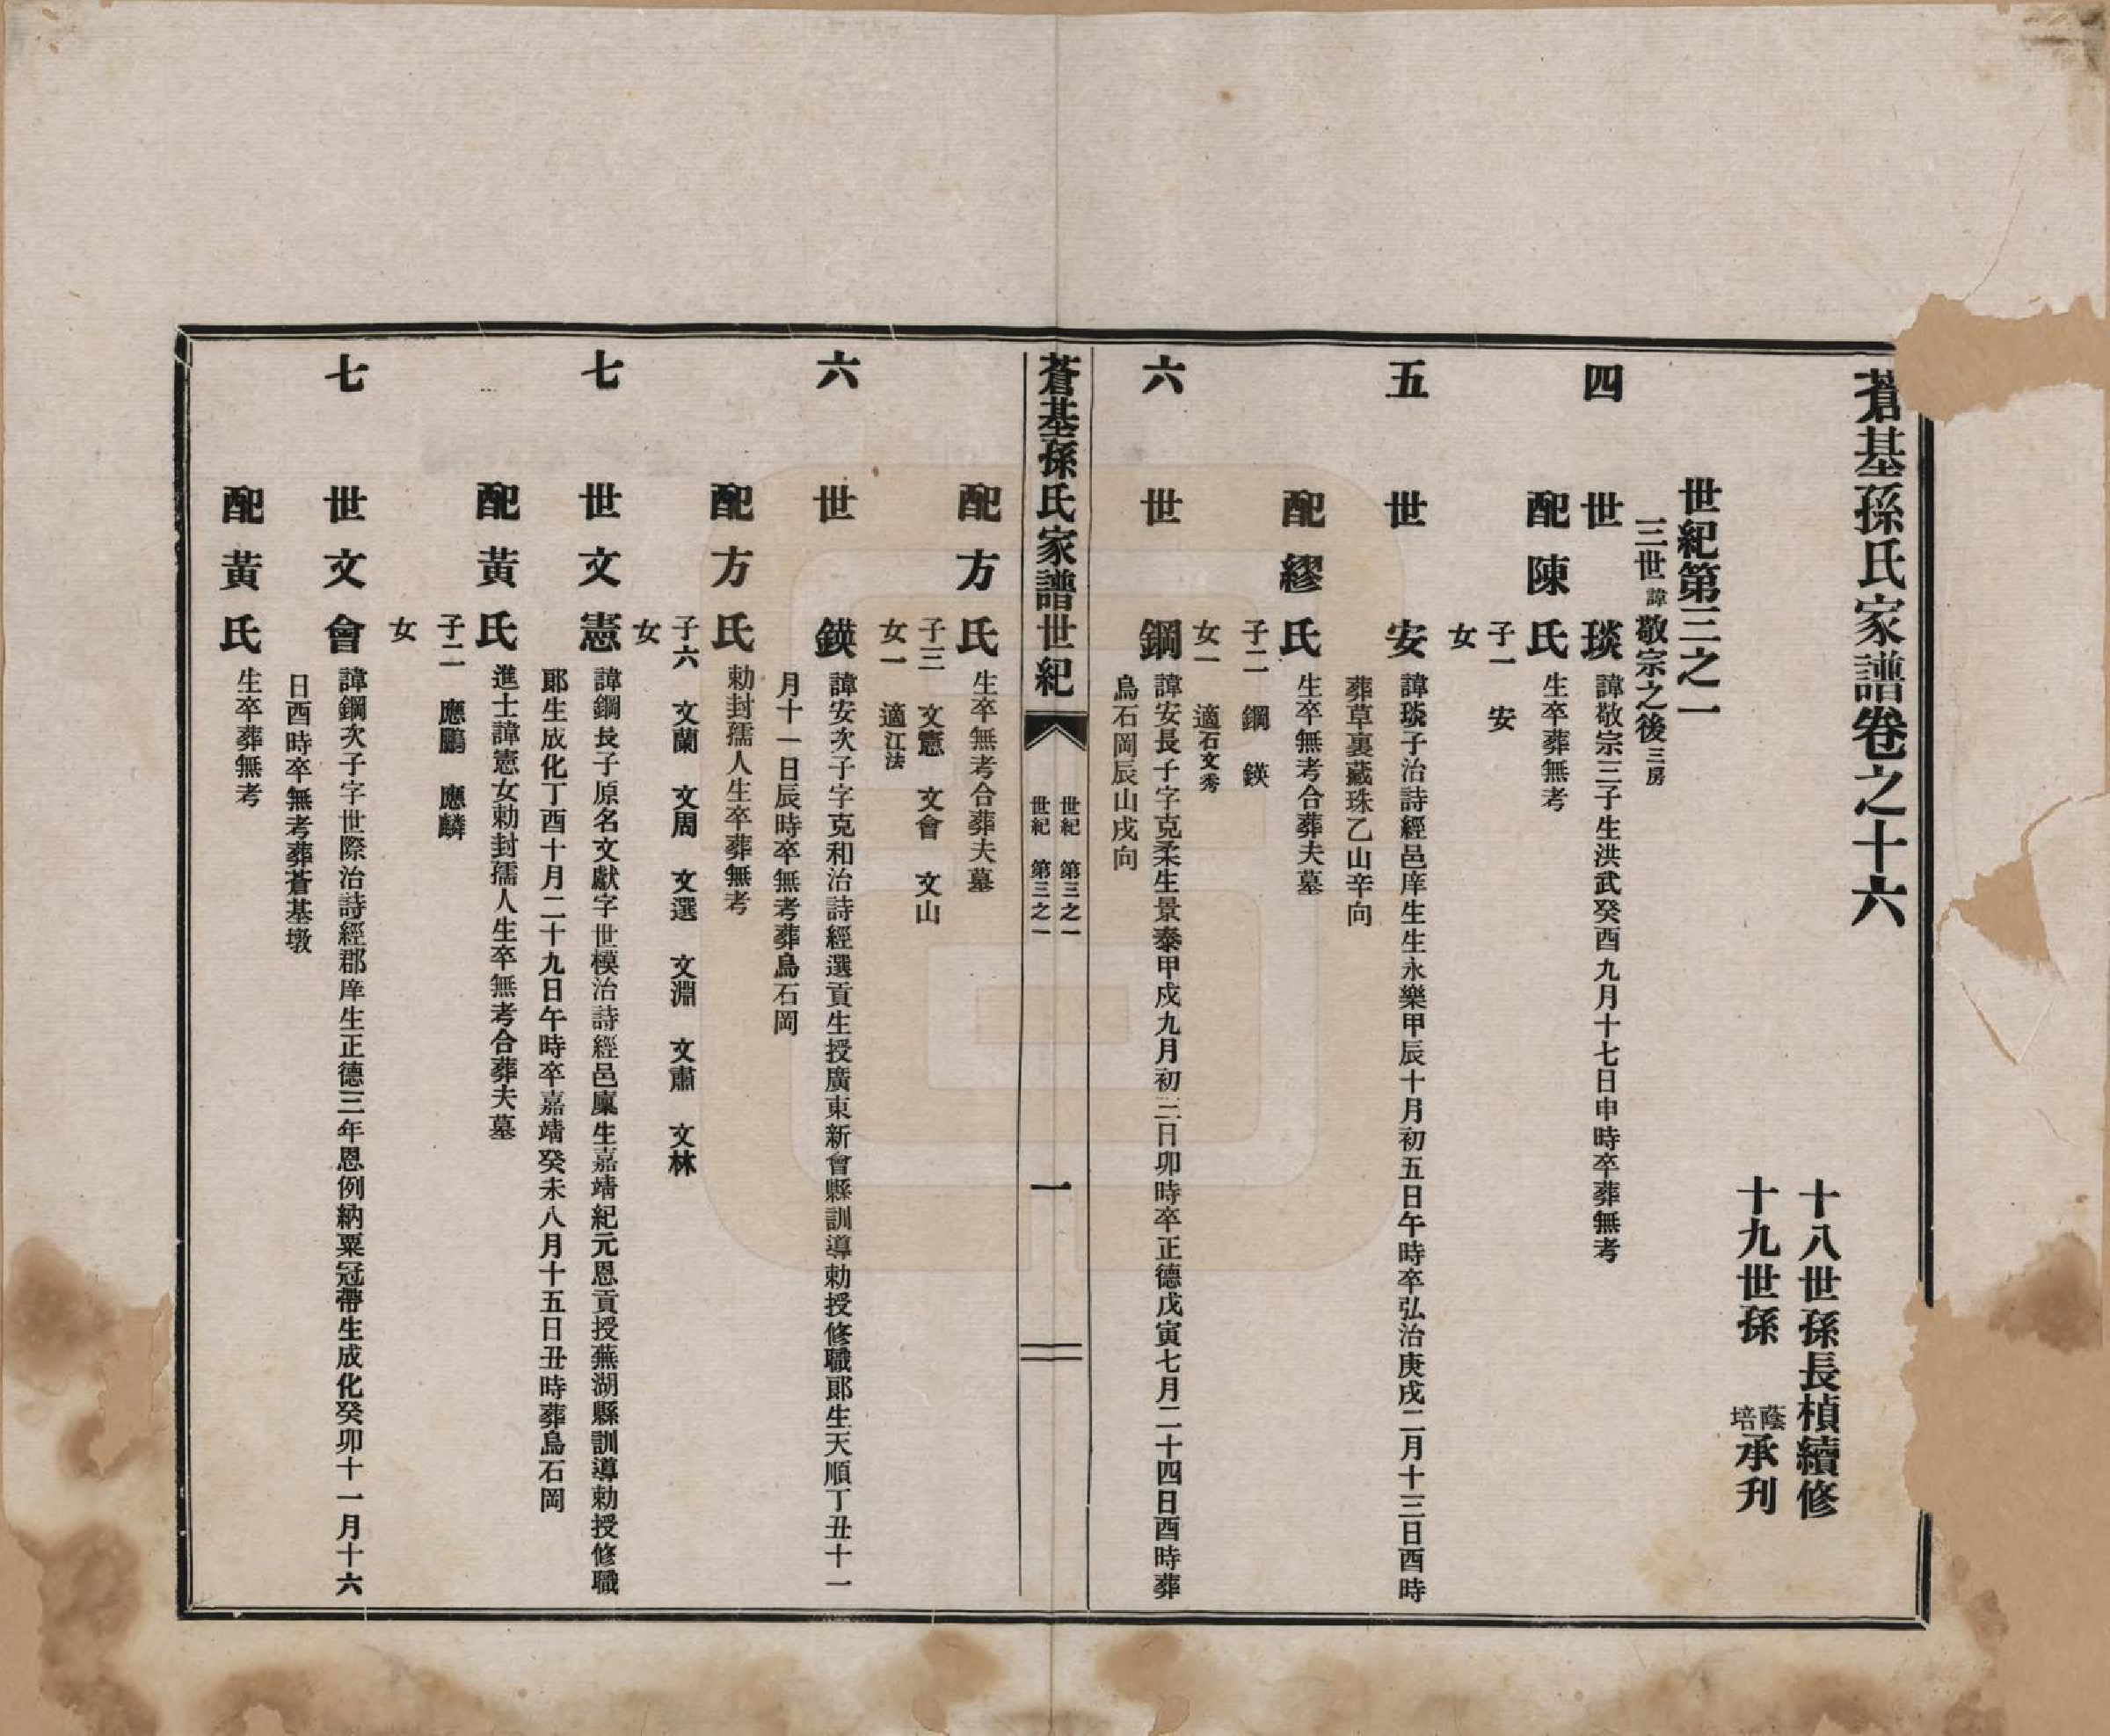 蒼基孫氏家譜卷之十六
十八世孫長楨續修
十九世孫 蔭培承刊
世紀第三之一
三世諱敬宗之後三房
四世 琰 諱敬宗三子生洪武癸酉九月十七日申時卒葬無考
配陳氏 生卒葬無考
子一 安
女
五世 安 諱琰子治詩經邑庠生生永樂甲辰十月初五日午時卒弘治庚戌二月十三日酉時
葬草裏藏珠乙山辛向
配繆氏 生卒無考合葬夫墓
子二 鋼 鍈
女一 適石文秀
六世 鋼 諱安長子字克柔生景泰甲戌九月初三日卯時卒正德戊寅七月二十四日酉時葬
烏石岡辰山戌向
蒼基孫氏家譜世紀
世紀 第三之一
世紀 第三之一
一
配方氏 生卒無考合葬夫墓
子三 文憲 文會 文山
女一 適江法
六世 鍈 諱安次子字克和治詩經選貢生授廣東新會縣訓導勅授修職郎生天順丁丑十一
月十一日辰時卒無考葬烏石岡
配方氏 勅封孺人生卒葬無考
子六 文蘭 文周 文選 文淵 文肅 文林
女
七世文憲 諱鋼長子原名文獻字世模治詩經邑廩生嘉靖紀元恩貢授蕪湖縣訓導勅授修職
郎生成化丁酉十月二十九日午時卒嘉靖癸未八月十五日丑時葬烏石岡
配黃氏 進士諱憲女勅封孺人生卒無考合葬夫墓
子二 應鵬 應麟
女
七世文會 諱鋼次子字世際治詩經郡庠生正德三年恩例納粟冠帶生成化癸卯十一月十六
日酉時卒無考葬蒼基墩
配黃氏 生卒葬無考